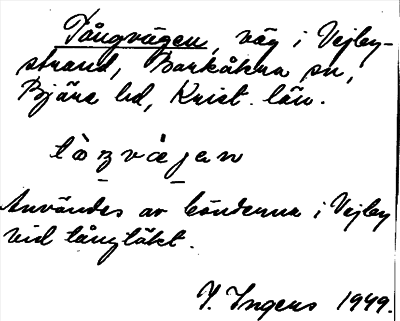 Tångvägen, väg i Vejby-
strand, Barkåkra sn,
Bjäre hd, Krist. län.
Användes av bönderna i Vejby
vid tångtäkt.
Y. Ingers 1949.